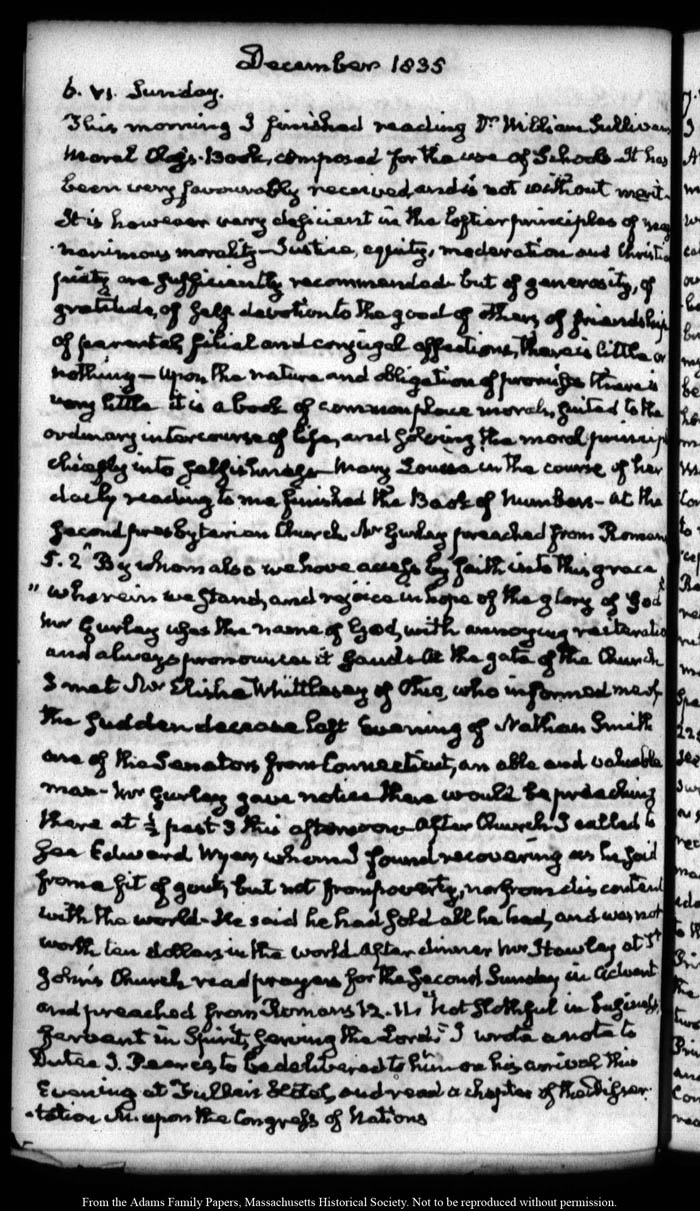 December 1835
6. VI. Sunday.
This morning I finished reading Dr. William Sullivan's
Moral Class-Book, composed for the use of Schools. It has
been very favourably received, and is not without merit.
It is however very deficient in the loftier principles of mag
-nanimous morality. Justice, equity, moderation and Christian
piety are sufficiently recommended but of generosity, of
gratitude, of self devotion to the good of others, of friendship
of parental, filial and conjugal affections, there is little or
nothing — Upon the nature and obligation of promises there is
very little it is a book of common place morals, suited to the
ordinary intercourse of life, and solving the moral princip
chiefly into selfishness — Mary Louisa in the course of her
daily reading to me finished the Book of Numbers — At the
second presbyterian Church, Mr Gurley preached from Romans
5. 2 "By whom also we have access by faith into this grace
" wherein we stand, and rejoice in hope of the glory of God"
Mr Gurley uses the name of God, with annoying reiteratio
and always pronounces it Gaud. At the gate of the Church
I met Mr Elisha Whittlesey of Ohio, who informed me of
the sudden decease last Evening of Nathan Smith
one of the Senators from Connecticut, an able and valuable
man — Mr Gurley gave notice there would be preaching
there at ½ past 3 this afternoon. After Church I called to
see Edward Wyer, whom I found recovering as he said
from a fit of gout, but not from poverty, nor from discontent
with the world. He said he had sold all he had, and was not
worth ten dollars in the world. After dinner Mr Hawley at St
John's Church read prayers for the Second Sunday in Advent
and preached from Romans 12. 11. "Not slothful in business,
fervent in Spirit, serving the Lord." I wrote a note to
Dutee J. Pearce, to be delivered to him on his arrival this
Evening at Fuller's Hotel, and read a chapter of the Disser
-tation upon the Congress of Nations
From the Adams Family Papers, Massachusetts Historical Society. Not to be reproduced without permission.